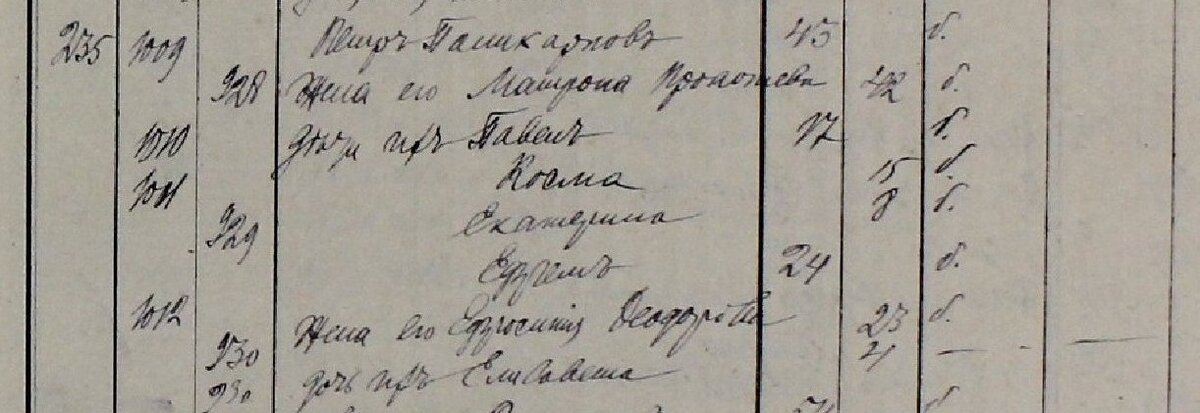 235 1009 Петръ Поликарповъ 45 б.
928 Жена его Матрона Прокопиева 42 б.
1010 дѣти ихъ Павелъ 17 б.
1011 Косма 15 б.
929 Екатерина 8 б.
1012 Ефремъ 24 б.
930 Жена его Ефросинія Феодорова 23 б.
дочь ихъ Елисавета 4 —